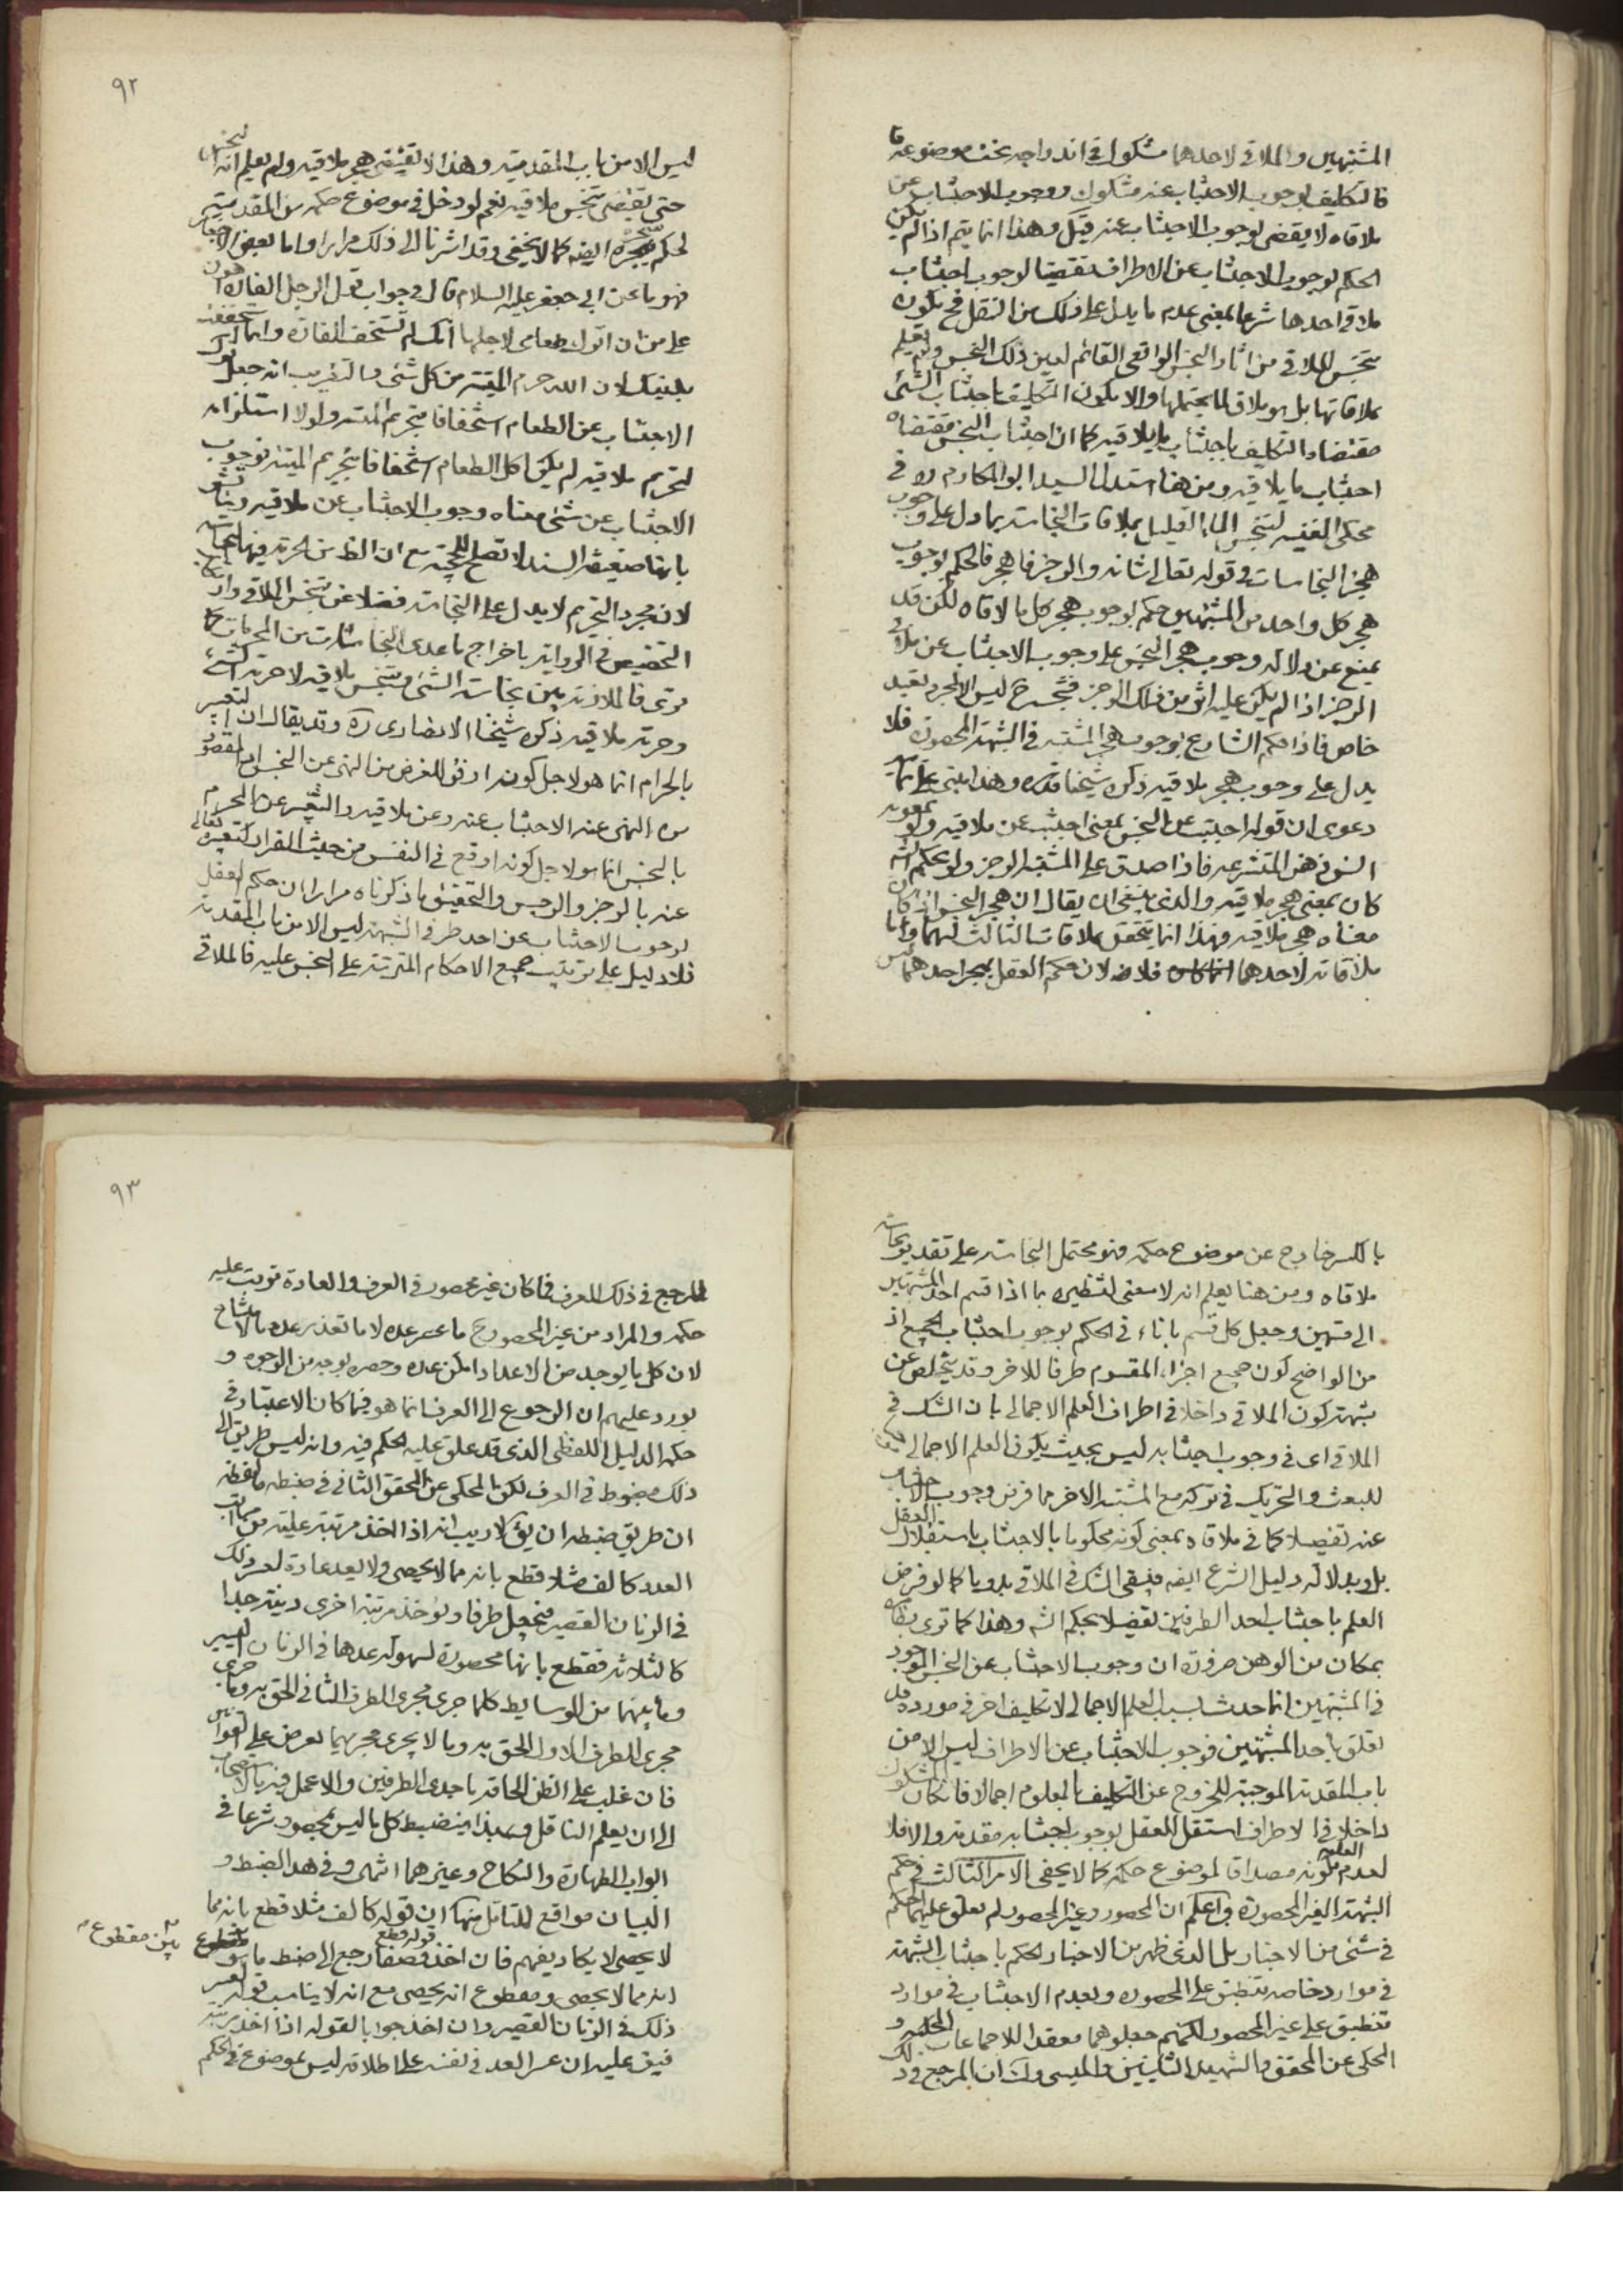 المشتبهين والملاقي لاحدهما مشكوك في اندراجه تحت موضوعه
فالتكليف بوجوب الاجتناب عنه مشكوك ووجوب الاجتناب عن
ملاقاه لا يقضى بوجوب الاجتناب عنه قيل وهذا انما يتم اذا لم يكن
الحكم بوجوب الاجتناب عن الاطراف مقتضيا لوجوب اجتناب
ملاقي احدها شرعا بمعنى عدم ما يدل على ذلك من النقل فح يكون
تنجس الملاقي من اثار النجس الواقعي القائم بعين ذلك النجس ولم يعلم
ملاقاتها بل هو ملاق لما يحتملها والا يكون التكليف باجتناب الشئ
مقتضاه التكليف باجتناب ما يلاقيه كما ان اجتناب النجس مقتضاه
اجتناب ما يلاقيه ومن هنا استدل السيد ابو المكارم ره في
محكي الغنية لتنجس الماء القليل بملاقات النجاسة بما دل على وجوب
هجز النجاسات في قوله تعالى شانه والرجز فاهجر فالحكم بوجوب
هجر كل واحد من المشتبهين حكم بوجوب هجر كل ما لاقاه لكن قد
يمنع عن دلالة وجوب هجر النجس على وجوب الاجتناب عن ملاقي
الرجز اذا لم يكن عليه اثر من ذلك الرجز فتنجسه ح ليس الا لمجرد تعبد
خاص فاذا حكم الشارع بوجوب هجر المشتبه في الشبهة المحصورة فلا
يدل على وجوب هجر ملاقيه ذكره شيخنا قده وهذا مبني على
دعوى ان قوله اجتنب عن النجس بمعنى اجتنب عن ملاقيه ولو بمعونة
المتشرعة فاذا صدق على المشتبه الرجز ولو بحكم
كان بمعنى هجر ملاقيه والذي ينبغي ان يقال ان هجر النجس اذا كان
معناه هجر ملاقيه فهذا انما يتحقق بملاقات الثالث لهما واما
ملاقاته لاحدهما فلا لان حكم العقل بهجر احدهما ليس
٩٢
ليس الا من باب المقدمية وهذا لا يقتضي هجر ملاقيه ولم يعلم انه النجس
حتى يقتضي تنجس ملاقيه نعم لو دخل في موضوع حكمه من المقدمية
لحكم بهجره ايضا كما لا يخفى وقد اشرنا الى ذلك مرارا واما بعض الاخبار
فهو ما عن ابي جعفر عليه السلام قال في جواب قول الرجل الفارة اهون
على من ان اترك طعامي لاجلها انك لم تستخف الفارة وانما استخففت
بدينك لان الله حرم الميتة من كل شئ والتقريب انه جعل ترك
الاجتناب عن الطعام استخفافا بتحريم الميتة ولولا استلزامه
لتحريم ملاقيه لم يكن اكل الطعام استخفافا بتحريم الميتة فوجوب
الاجتناب عن شئ معناه وجوب الاجتناب عن ملاقيه
بانها ضعيفة السند لا تصلح للحجية مع ان الظ من الحرمة فيها النجاسة
لان مجرد التحريم لا يدل على النجاسة فضلا عن تنجس الملاقي
التخصيص في الرواية باخراج ما عدى النجاسات من المحرمات كما
ترى فالملازمة بين نجاسة الشئ وتنجس ملاقيه لا حرمة الشئ
وحرمة ملاقيه ذكره شيخنا الانصاري ره وقد يقال ان التعبير
بالحرام انما هو لاجل كونه اوفق للغرض من النهى عن النجس اذ المقصود
من النهى عنه الاجتناب عنه وعن ملاقيه والتعبير عن المحرم
بالنجس انما هو لاجل كونه اوقع في النفس من حيث الفرار كتعبيره تعالى
عنه بالرجز والرجس والتحقيق ما ذكرناه مرارا ان حكم العقل
لوجوب الاجتناب عن احد طرفي الشبهة ليس الا من باب المقدمة
فلا دليل على ترتيب جميع الاحكام المترتبة على النجس عليه فالملاقي
بالكسر خارج عن موضوع حكمه فهو محتمل النجاسة على تقدير نجاسة
ملاقاه ومن هنا يعلم انه لا معنى لتنظيره بما اذا قسم احد المشتبهين
الى قسمين وجعل كل قسم باناء في الحكم بوجوب اجتناب الجميع اذ
من الواضح كون جميع اجزاء المقسوم طرفا للاخر وقد يتخلص عن
شبهة كون الملاقي داخلا في اطراف العلم الاجمالي بان الشك في
الملاقي اى في وجوب اجتنابه ليس بحيث يكون العلم الاجمالي
للبعث والتحريك في تركه مع المشتبه الاخر مما فرض وجوب الاجتناب
عنه تفصيلا كما في ملاقاه بمعنى كونه محكوما بالاجتناب باستقلال العقل
بل وبدلالة دليل الشرع ايضا فيبقى الشك في الملاقي بدويا كما لو فرض
العلم باجتناب احد الطرفين تفصيلا بحكم الشه وهذا كما ترى
بمكان من الوهن ضرورة ان وجوب الاجتناب عن النجس الموجود
في المشتبهين انما حدث بسبب العلم الاجمالي لا تكليف اخر في مورده قد
تعلق باحد المشتبهين فوجوب الاجتناب عن الاطراف ليس الا من
باب المقدمة الموجبة للخروج عن التكليف المعلوم اجمالا فان كان المشكوك
داخلا في الاطراف استقل العقل بوجوب اجتنابه مقدمة والا فلا
لعدم العلم بكونه مصداقا لموضوع حكمه كما لا يخفى الامر الثالث في حكم
الشبهة الغير المحصورة واعلم ان المحصور وغير المحصور لم يعلق عليهما الحكم
في شئ من الاخبار بل الذي ظهر من الاخبار الحكم باجتناب الشبهة
في موارد خاصة تنطبق على المحصورة وبعدم الاجتناب في موارد
تنطبق على غير المحصور لكنهم جعلوهما معقدا للاجماعات
المحكي عن المحقق والشهيد الثانيين والميسي وك ان المرجع في ذلك
٩٣
المرجع في ذلك العرف فما كان غير محصور في العرف والعادة ترتب عليه
حكمه والمراد من غير المحصور ح ما عسر عده لا ما تعذر عده
لان كل ما يوجد من الاعداد امكن عده وحصره بوجه من الوجوه و
يورد عليهم ان الرجوع الى العرف انما هو فيما كان الاعتبار في
حكمه الدليل اللفظي الذي قد علق عليه الحكم فيه وانه ليس طريق الى
ذلك مضبوط في العرف لكن المحكي عن المحقق الثاني في ضبطه ما لفظه
ان طريق ضبطه ان يق لا ريب انه اذا اخذ مرتبة عليه من مراتب
العدد كالف مثلا قطع بانه مما لا يحصى ولا يعد عادة لعسر ذلك
في الزمان القصير فيجعل طرفا ويؤخذ مرتبة اخرى دنية جدا
كالثلاثة فقطع بانها محصورة لسهولة عدها في الزمان اليسير
وما بينهما من الوسايط كلما جرى مجرى الطرف الثاني الحق به وما جرى
مجرى الطرف الاول الحق به وما لا يجرى مجريهما يعرض على القوانين
فان غلب على الظن الحاقه باحدى الطرفين والا عمل فيه بالاستصحاب
الى ان يعلم الناقل وبهذا ينضبط كل ما ليس بمحصور شرعا في
ابواب الطهارة والنكاح وغيرهما انتهى وفي هذا الضبط و
البيان مواقع للتامل منها ان قوله كالف مثلا قطع بانه مما
لا يحصى لا يكاد يفهم فان اخذ قوله قطع وصفا رجع الى ضبط ما هو
بين مقطوع
انه مما لا يحصى ومقطوع انه يحصى مع انه لا يناسب قوله لعسر
ذلك في الزمان القصير وان اخذ جوابا لقوله اذا اخذ مرتبة
فيق عليه ان عسر العد في نفسه على اطلاقه ليس بموضوع في الحكم